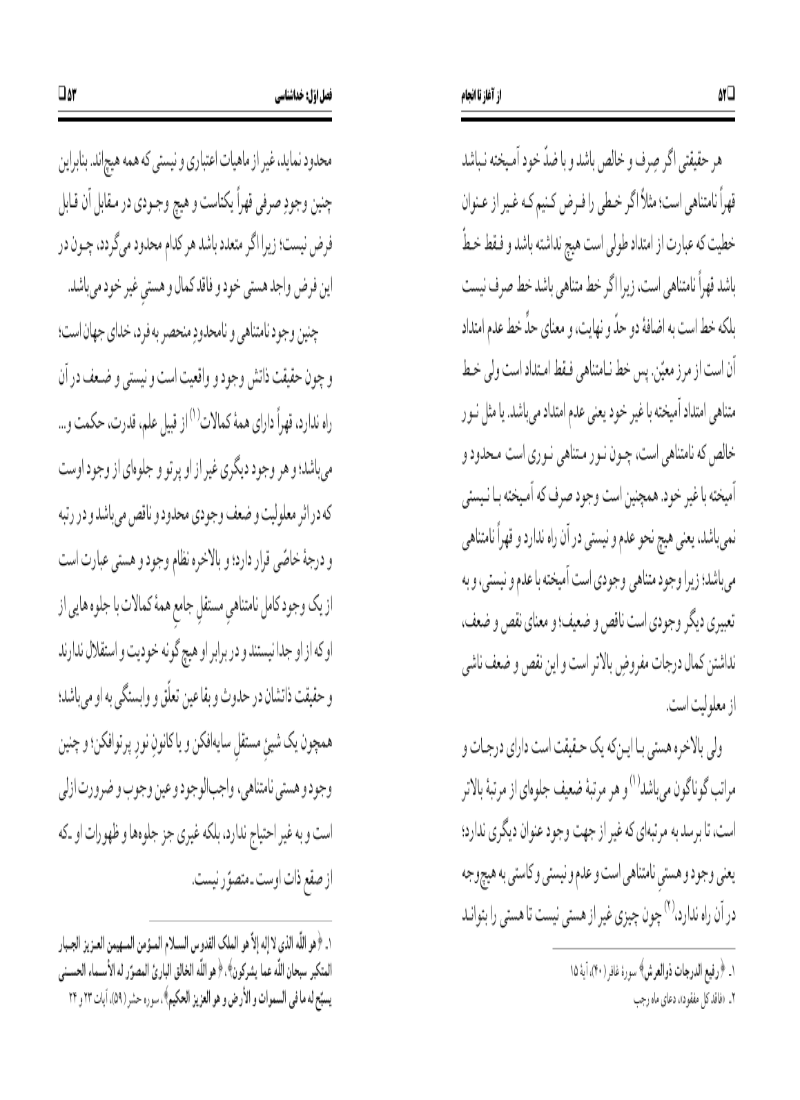 ❑ ۵۲ از آغاز تا انجام
هر حقیقتی اگر صِرف و خالص باشد و با ضدّ خود آمیخته نباشد
قهراً نامتناهی است؛ مثلاً اگر خطی را فرض کنیم که غیر از عنوان
خطیت که عبارت از امتداد طولی است هیچ نداشته باشد و فقط خطّ
باشد قهراً نامتناهی است، زیرا اگر خط متناهی باشد خط صرف نیست
بلکه خط است به اضافهٔ دو حدّ و نهایت، و معنای حدِّ خط عدم امتداد
آن است از مرز معیّن. پس خط نامتناهی فقط امتداد است ولی خط
متناهی امتداد آمیخته با غیر خود یعنی عدم امتداد می‌باشد. یا مثل نور
خالص که نامتناهی است، چون نور متناهی نوری است محدود و
آمیخته با غیر خود. همچنین است وجود صرف که آمیخته با نیستی
نمی‌باشد، یعنی هیچ نحو عدم و نیستی در آن راه ندارد و قهراً نامتناهی
می‌باشد؛ زیرا وجود متناهی وجودی است آمیخته با عدم و نیستی، و به
تعبیری دیگر وجودی است ناقص و ضعیف؛ و معنای نقص و ضعف،
نداشتن کمال درجات مفروضِ بالاتر است و این نقص و ضعف ناشی
از معلولیت است.
ولی بالاخره هستی با این‌که یک حقیقت است دارای درجات و
مراتب گوناگون می‌باشد(۱) و هر مرتبهٔ ضعیف جلوه‌ای از مرتبهٔ بالاتر
است، تا برسد به مرتبه‌ای که غیر از جهت وجود عنوان دیگری ندارد؛
یعنی وجود و هستیِ نامتناهی است و عدم و نیستی و کاستی به هیچ‌وجه
در آن راه ندارد،(۲) چون چیزی غیر از هستی نیست تا هستی را بتواند
۱ـ ﴿رفیع الدرجات ذوالعرش﴾ سورهٔ غافر (۴۰)، آیهٔ ۱۵
۲ـ «فاقد کل مفقود»، دعای ماه رجب
فصل اوّل: خداشناسی ۵۳ ❑
محدود نماید، غیر از ماهیات اعتباری و نیستی که همه هیچ‌اند. بنابراین
چنین وجودِ صرفی قهراً یکتاست و هیچ وجودی در مقابل آن قابل
فرض نیست؛ زیرا اگر متعدد باشد هر کدام محدود می‌گردد، چون در
این فرض واجد هستی خود و فاقد کمال و هستیِ غیر خود می‌باشد.
چنین وجود نامتناهی و نامحدودِ منحصر به فرد، خدای جهان است؛
و چون حقیقت ذاتش وجود و واقعیت است و نیستی و ضعف در آن
راه ندارد، قهراً دارای همهٔ کمالات(۱) از قبیل علم، قدرت، حکمت و...
می‌باشد؛ و هر وجود دیگری غیر از او پرتو و جلوه‌ای از وجود اوست
که در اثر معلولیت و ضعف وجودی محدود و ناقص می‌باشد و در رتبه
و درجهٔ خاصّی قرار دارد؛ و بالاخره نظام وجود و هستی عبارت است
از یک وجود کامل نامتناهیِ مستقلِ جامعِ همهٔ کمالات با جلوه هایی از
او که از او جدا نیستند و در برابر او هیچ گونه خودیت و استقلال ندارند
و حقیقت ذاتشان در حدوث و بقا عین تعلّق و وابستگی به او می‌باشد؛
همچون یک شیئِ مستقلِ سایه‌افکن و یا کانونِ نورِ پرتوافکن؛ و چنین
وجود و هستی نامتناهی، واجب‌الوجود و عین وجوب و ضرورت ازلی
است و به غیر احتیاج ندارد، بلکه غیری جز جلوه‌ها و ظهورات او ـ‌که
از صقع ذات اوست ـ متصوّر نیست.
۱ـ ﴿هو اللّه الذی لا إله إلاّ هو الملک القدوس السلام المؤمن المهیمن العزیز الجبار
المتکبر سبحان اللّه عما یشرکون﴾، ﴿هو اللّه الخالق البارئ المصوّر له الأسماء الحسنی
یسبّح له ما فی السموات و الأرض و هو العزیز الحکیم﴾، سوره حشر (۵۹)، آیات ۲۳ و ۲۴